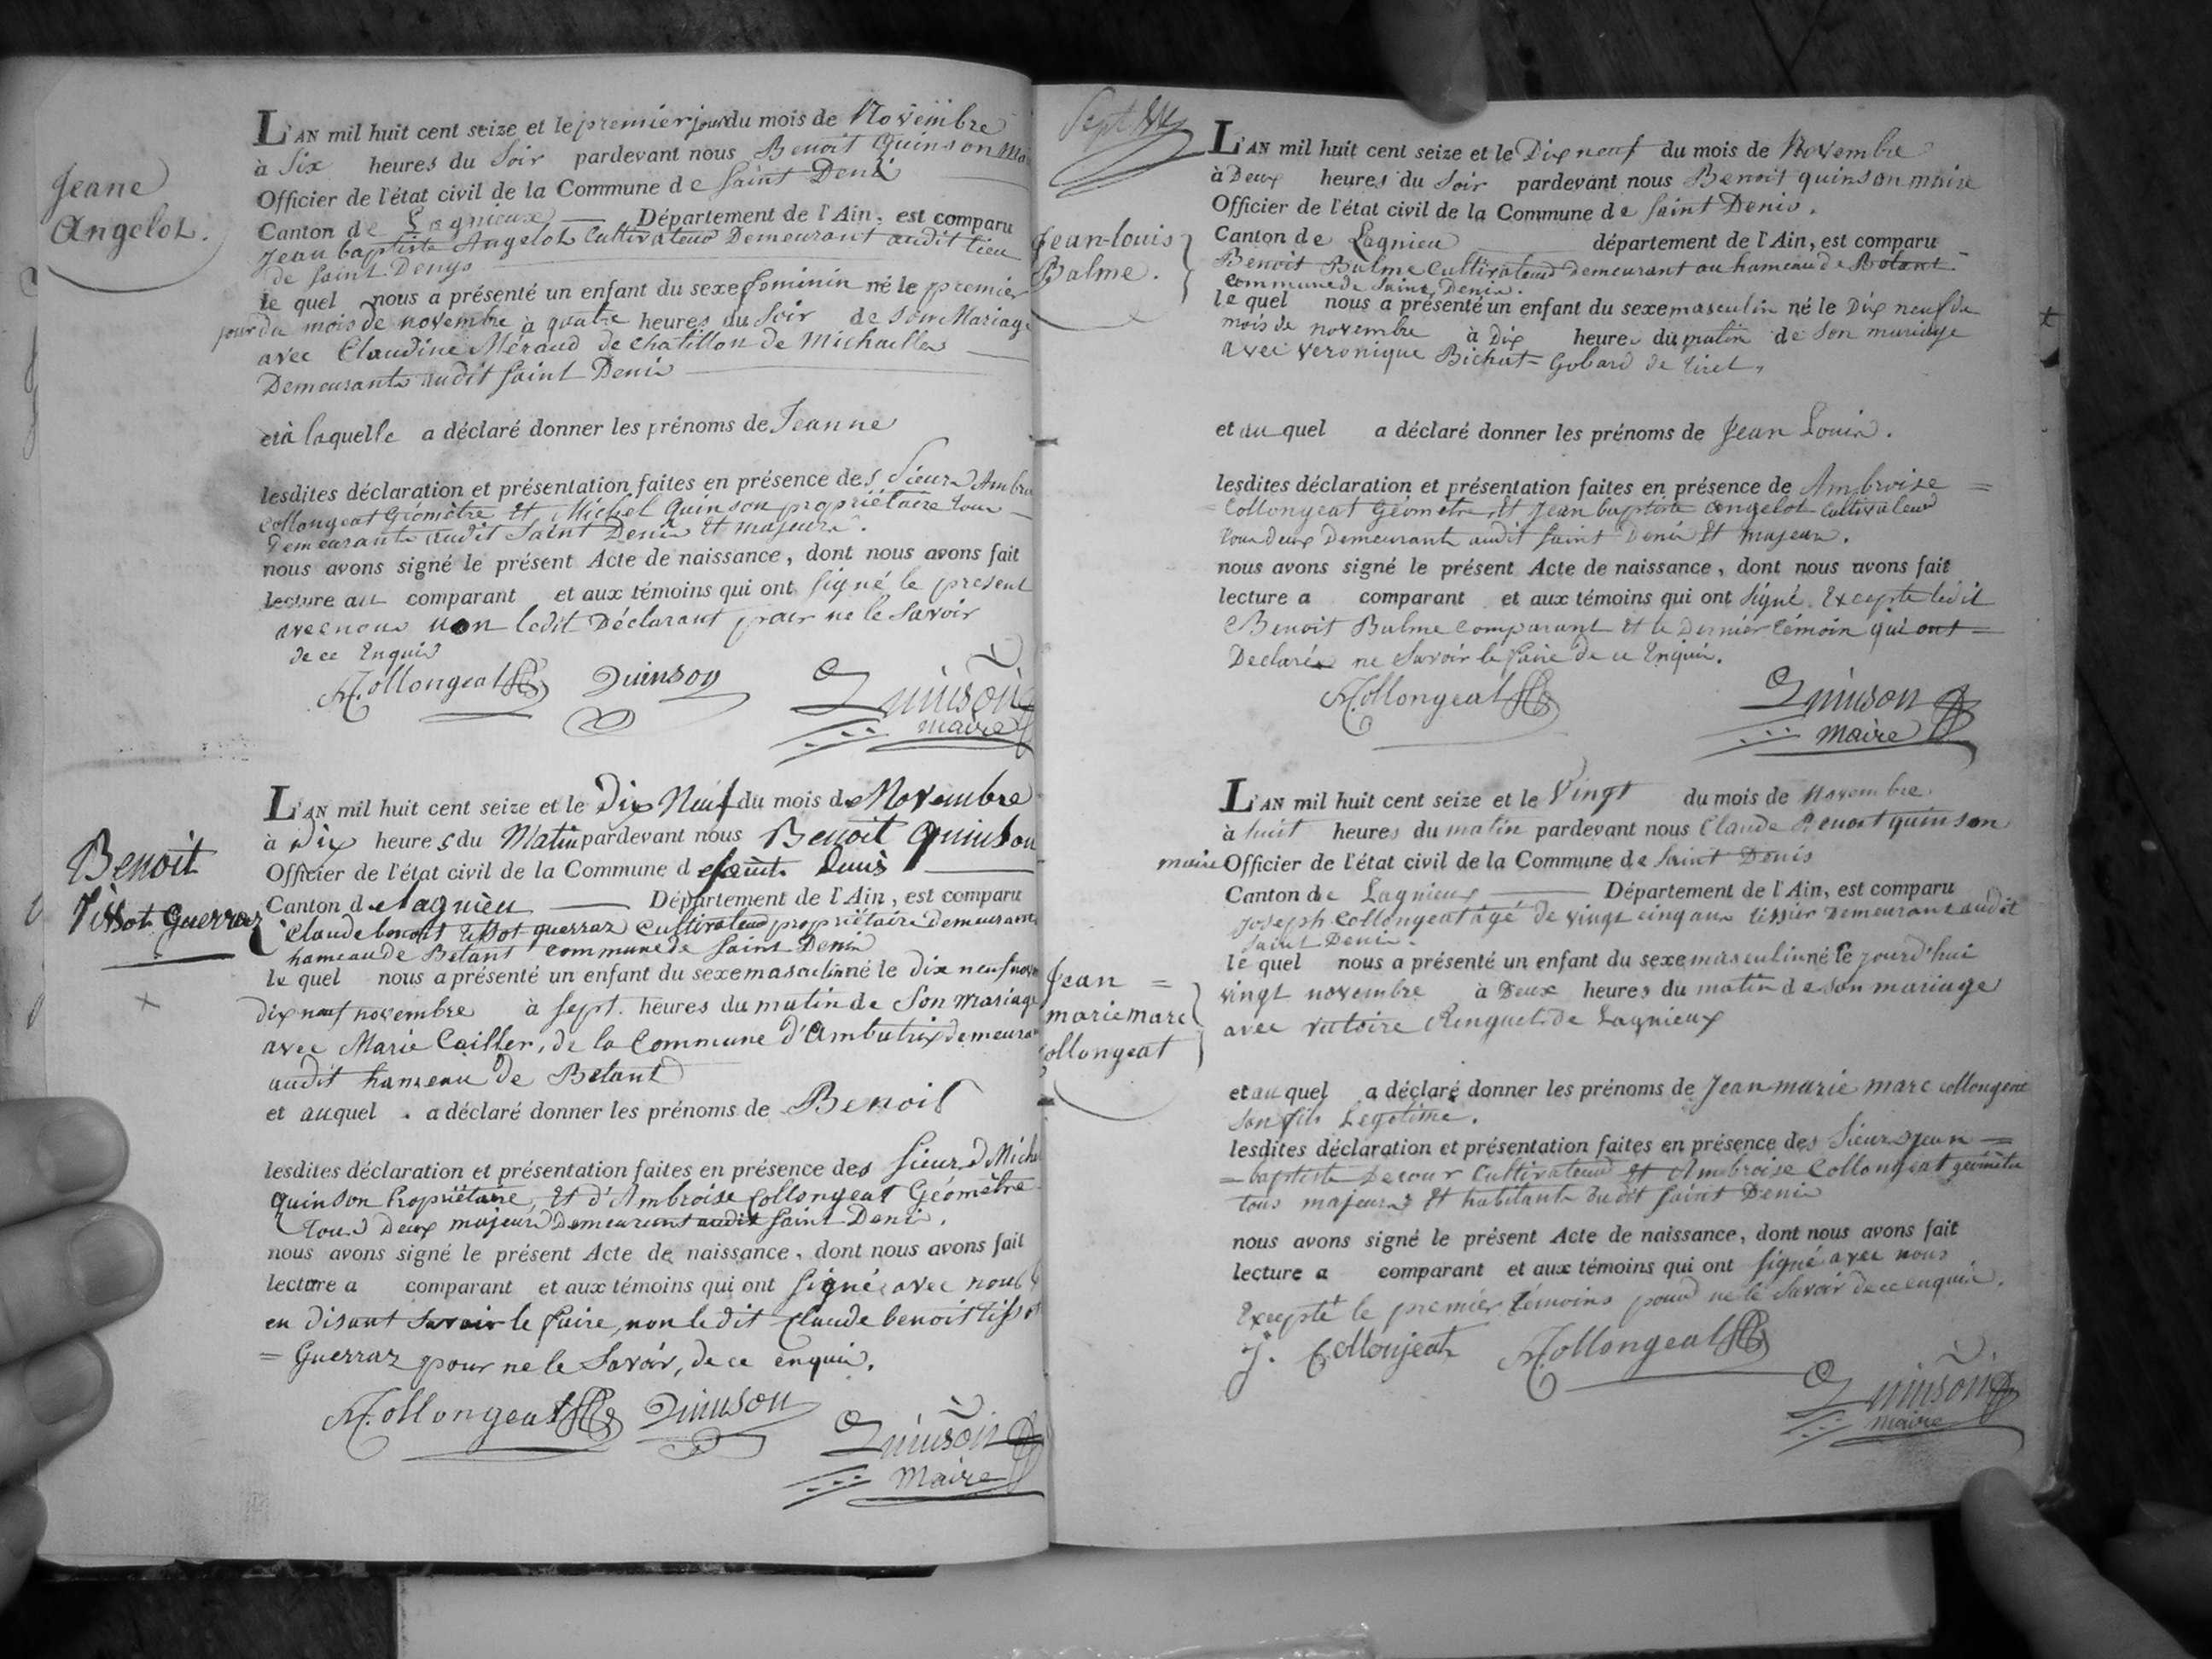 Jeane
Angelot.
L'AN mil huit cent seize et le premier jour du mois de Novembre
à Six heures du Soir pardevant nous Benoit Quinson
Officier de l'état civil de la Commune de Saint Deni
Canton de Lagnieux Département de l'Ain, est comparu
Jean baptiste Angelot Cultivateur Demeurant audit lieu
de Saint Denys
le quel nous a présenté un enfant du sexe feminin né le premier
jour du mois de novembre à quatre heures du Soir de son Mariage
avec Claudine Méraud de chatillon de Michailles
Demeurants audit Saint Denis
et à laquelle a déclaré donner les prénoms de Jeanne
lesdites déclaration et présentation faites en présence des Sieurs
Collongeat Géomètre Et Michel Quinson propriétaire tous
Demeurants audit Saint Denis Et majeurs.
nous avons signé le présent Acte de naissance, dont nous avons fait
lecture au comparant et aux témoins qui ont Signé le present
avec nous non ledit Déclarant pour ne le Savoir
de ce Enquis
A. Collongeat Quinson Quinson
maire
Benoit
Tissot Guerraz
L'AN mil huit cent seize et le Dix Neuf du mois de Novembre
à Dix heures du Matin pardevant nous Benoit Quinson
Officier de l'état civil de la Commune de Saint Denis
Canton de Lagnieu Département de l'Ain, est comparu
Claude benoit Tissot guerraz Cultivateur propriétaire Demeurant
hameau de Betant commune de Saint Denis
le quel nous a présenté un enfant du sexe masculin né le Dix neuf
dix neuf novembre à sept heures du matin de Son Mariage
avec Marie Cailler, de la Commune d'Ambutrix
audit hameau de Betant
et auquel a déclaré donner les prénoms de Benoit
lesdites déclaration et présentation faites en présence des Sieurs
Quinson Propriétaire, Et d'Ambroise Collongeat Géomètre
Tous Deux majeurs Demeurant audit Saint Denis.
nous avons signé le présent Acte de naissance, dont nous avons fait
lecture a comparant et aux témoins qui ont Signé avec nous
en disant Savoir le faire, non le dit Claude benoit
= Guerraz pour ne le Savoir, de ce enquis.
A. Collongeat Quinson Quinson
Maire
Sept
Jean-louis
Balme.
L'AN mil huit cent seize et le Dix neuf du mois de Novembre
à Deux heures du Soir pardevant nous Benoit quinson maire
Officier de l'état civil de la Commune de Saint Denis.
Canton de Lagnieu département de l'Ain, est comparu
Benoit Balme Cultivateur demeurant au hameau de Betant
commune de Saint Denis.
le quel nous a présenté un enfant du sexe masculin né le Dix neuf du
mois de novembre à Dix heures du matin de Son mariage
avec veronique Bichat = Gobard de tiret,
et au quel a déclaré donner les prénoms de Jean Louis.
lesdites déclaration et présentation faites en présence de Ambroise =
= Collongeat Géometre Et Jean baptiste Angelot Cultivateur
tous deux Demeurants audit Saint Denis Et majeurs.
nous avons signé le présent Acte de naissance, dont nous avons fait
lecture a comparant et aux témoins qui ont Signé. Excepté ledit
Benoit Balme comparant Et le Dernier témoin qui ont =
Declarés ne Savoir le faire de ce Enquis.
A. Collongeat Quinson
Maire
Jean =
marie marc
Collongeat
L'AN mil huit cent seize et le Vingt du mois de Novembre
à huit heures du matin pardevant nous Claude Benoit quinson
maire Officier de l'état civil de la Commune de Saint Denis
Canton de Lagnieux Département de l'Ain, est comparu
Joseph Collongeat âgé de vingt cinq ans tissier Demeurant audit
Saint Denis.
le quel nous a présenté un enfant du sexe masculin né le jourd'hui
vingt novembre à Deux heures du matin de son mariage
avec victoire Ringuet de Lagnieux
et au quel a déclaré donner les prénoms de Jean marie marc collongeat
Son fils Legetime.
lesdites déclaration et présentation faites en présence des Sieurs Jean =
= baptiste Decour Cultivateur Et Ambroise Collongeat géomètre
tous majeurs Et habitants dudit Saint Denis
nous avons signé le présent Acte de naissance, dont nous avons fait
lecture a comparant et aux témoins qui ont Signé avec nous
Excepté le premier temoins pour ne le Savoir de ce enquis.
J. Collonjeat A. Collongeat Quinson
maire